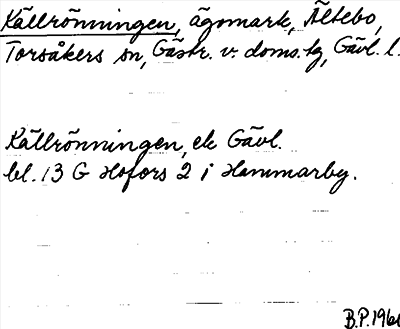 Källrönningen, ägomark, Ältebo,
Torsåkers sn, Gästr. v. doms. tg, Gävl. l.
Källrönningen, ek Gävl.
bl. 13 G Hofors 2 i Hammarby.
B.P. 1960